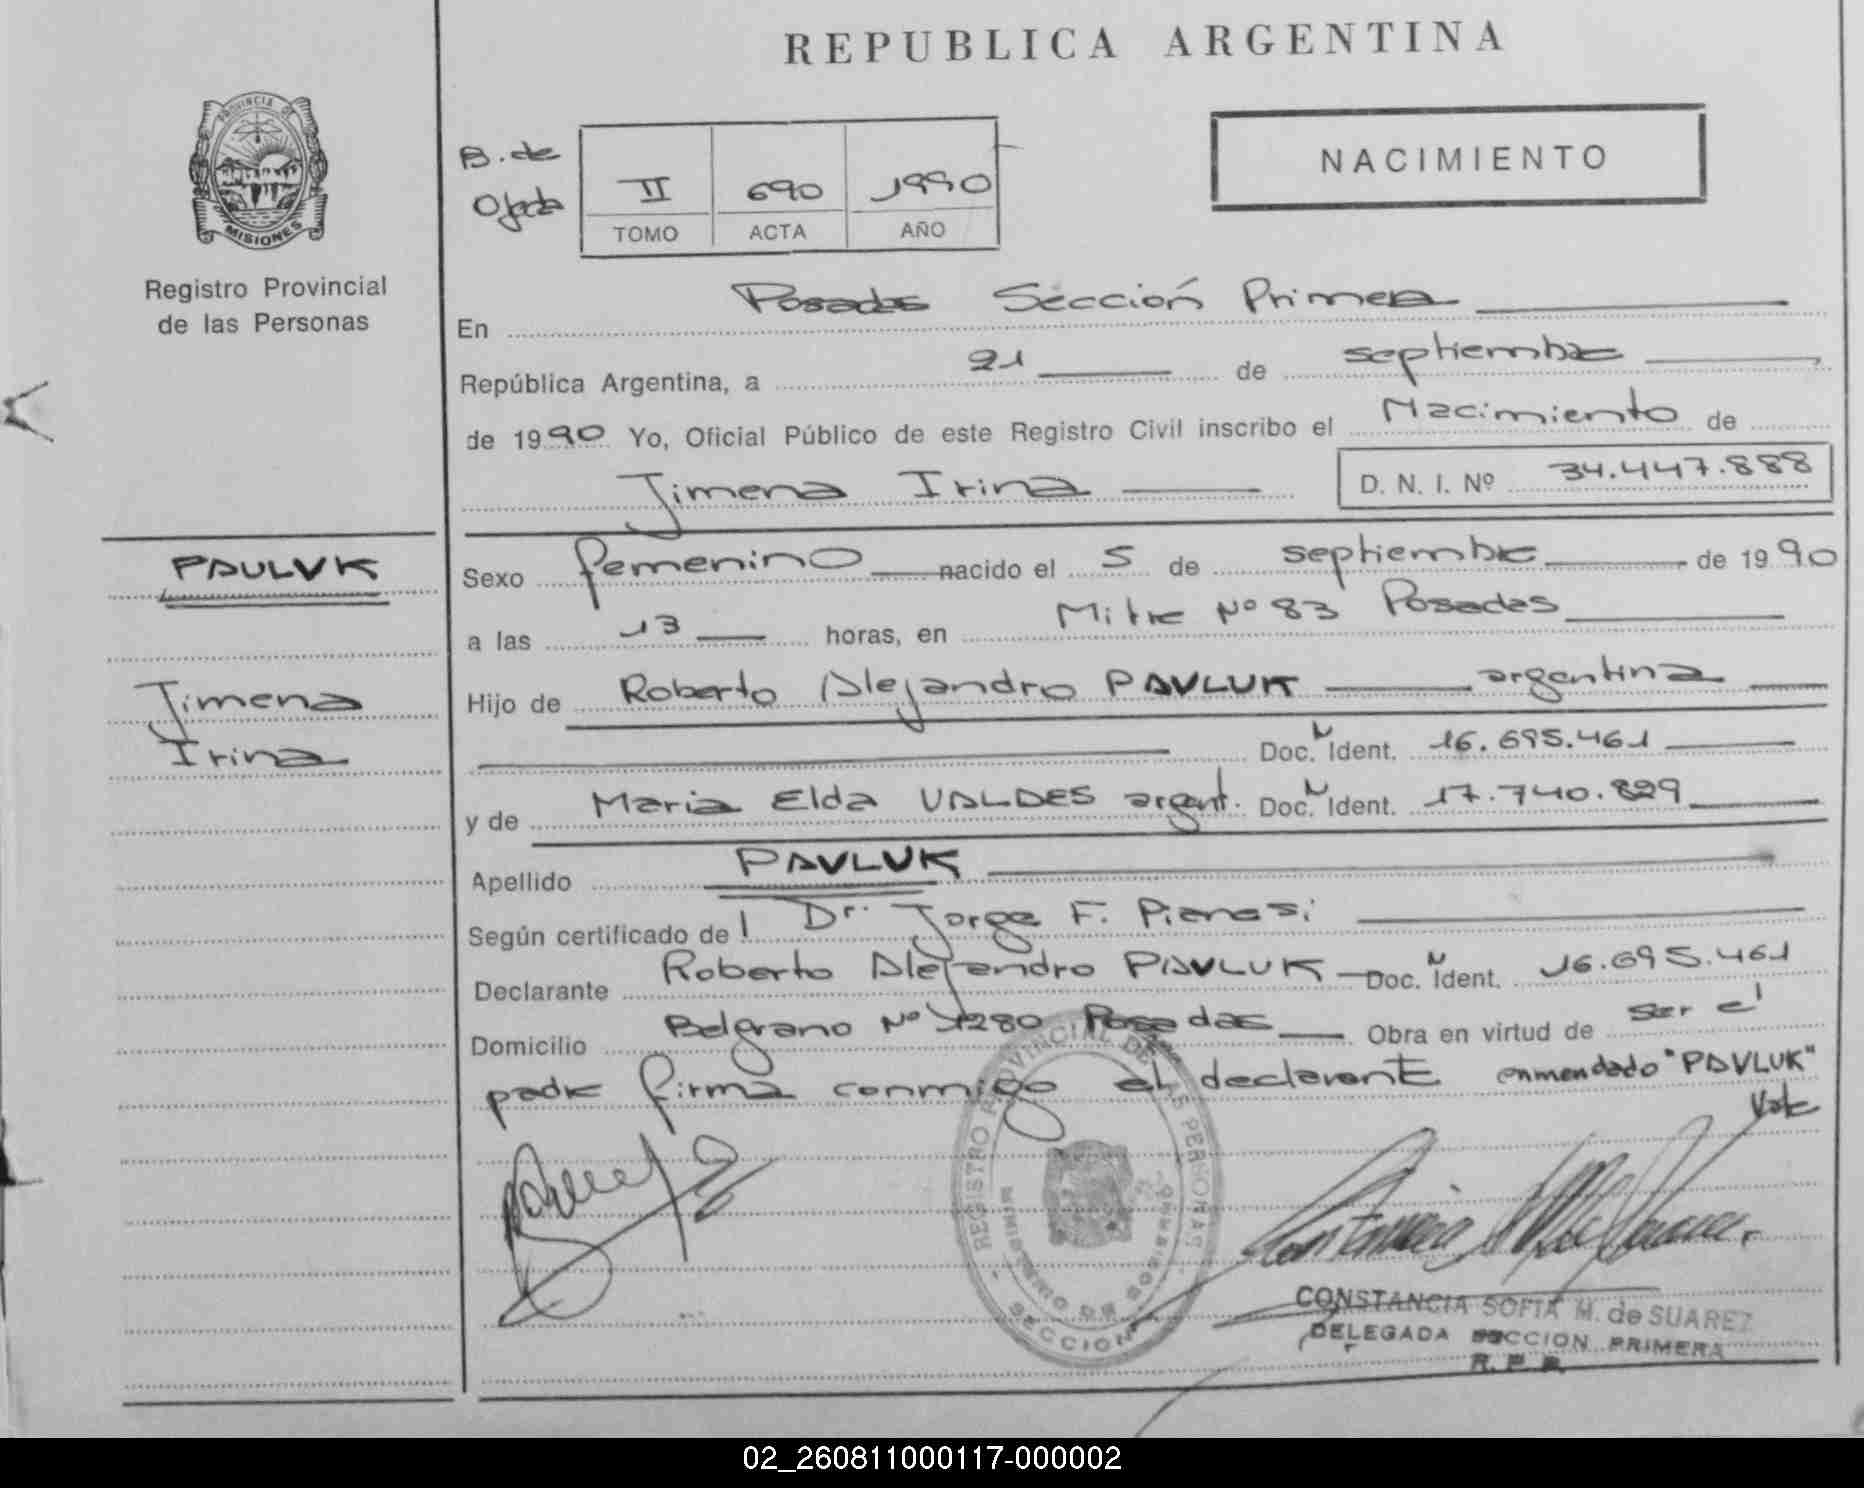 REPUBLICA ARGENTINA
PROVINCIA DE
MISIONES
Registro Provincial
de las Personas
B. de
Ojeda
II 690 1990
TOMO ACTA AÑO
NACIMIENTO
En Posadas Sección Primera
República Argentina, a 21 de septiembre
de 1990 Yo, Oficial Público de este Registro Civil inscribo el Nacimiento de
Jimena Irina D. N. I. Nº 34.447.888
PAVLUK
Jimena
Irina
Sexo femenino nacido el 5 de septiembre de 1990
a las 13 horas, en Mitre Nº 83 Posadas
Hijo de Roberto Alejandro PAVLUK argentina
Doc. N Ident. 16.695.461
y de Maria Elda VALDES argent. Doc. N Ident. 17.740.829
Apellido PAVLUK
Según certificado de l Dr. Jorge F. Pianesi
Declarante Roberto Alejandro PAVLUK Doc. N Ident. 16.695.461
Domicilio Belgrano Nº 1280 Posadas Obra en virtud de ser el
padre firma conmigo el declarante enmendado "PAVLUK"
Vale
REGISTRO PROVINCIAL DE LAS PERSONAS
MINISTERIO DE GOBIERNO
SECCION
CONSTANCIA SOFIA M. de SUAREZ
DELEGADA SECCION PRIMERA
R. P. P.
02_260811000117-000002